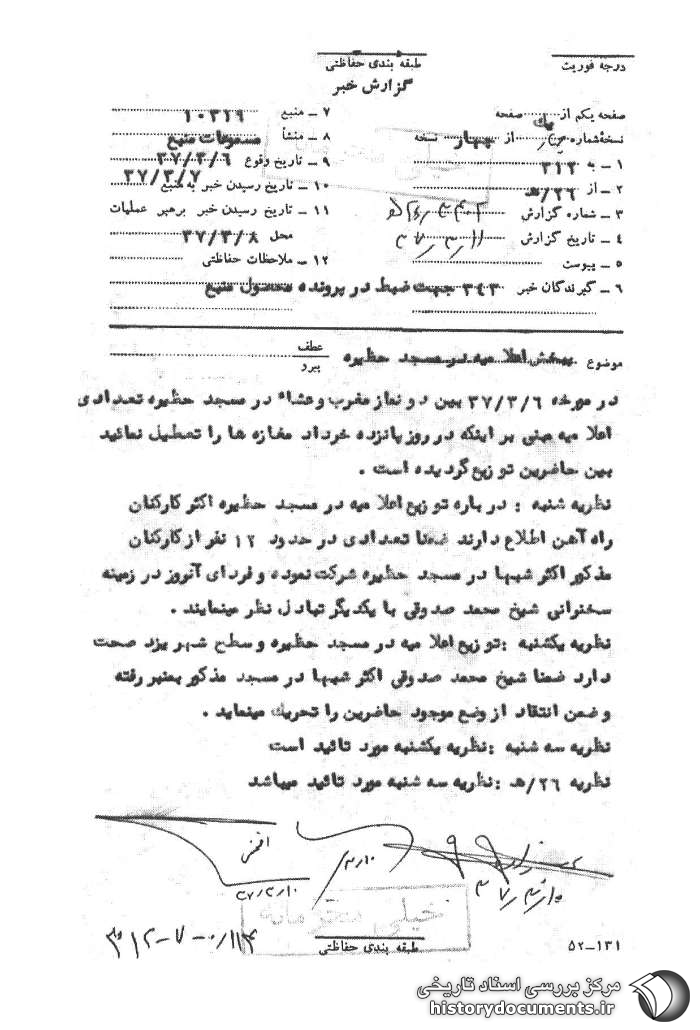 طبقه بندی حفاظتی
درجه فوریت
گزارش خبر
صفحه یکم از یک صفحه
نسخه شماره از چهار نسخه
۱ ــ به ۳۱۲
۲ ــ از ۲۶/هـ
۳ ــ شماره گزارش
۴ ــ تاریخ گزارش ۳۷/۳/۱۱
۵ ــ پیوست
۶ ــ گیرندگان خبر ۳۴۳ جهت ضبط در پرونده محصول منبع
۷ ــ منبع ۱۰۳۱۹
۸ ــ منشأ مسموعات منبع
۹ ــ تاریخ وقوع ۳۷/۳/۶
۱۰ ــ تاریخ رسیدن خبر به منبع ۳۷/۳/۷
۱۱ ــ تاریخ رسیدن خبر برهبر عملیات
محل ۳۷/۳/۸
۱۲ ــ ملاحظات حفاظتی
موضوع پخش اعلامیه در مسجد حظیره
عطف
پیرو
در مورخه ۳۷/۳/۶ بین دو نماز مغرب و عشاء در مسجد حظیره تعدادی
اعلامیه مبنی بر اینکه در روز پانزده خرداد مغازه ها را تعطیل نمائید
بین حاضرین توزیع گردیده است .
نظریه شنبه : در باره توزیع اعلامیه در مسجد حظیره اکثر کارکنان
راه آهن اطلاع دارند ضمنا تعدادی در حدود ۱۲ نفر از کارکنان
مذکور اکثر شبها در مسجد حظیره شرکت نموده و فردای آنروز در زمینه
سخنرانی شیخ محمد صدوقی با یکدیگر تبادل نظر مینمایند .
نظریه یکشنبه : توزیع اعلامیه در مسجد حظیره و سطح شهر یزد صحت
دارد ضمنا شیخ محمد صدوقی اکثر شبها در مسجد مذکور بمنبر رفته
و ضمن انتقاد از وضع موجود حاضرین را تحریک مینماید .
نظریه سه شنبه : نظریه یکشنبه مورد تائید است
نظریه ۲۶/هـ : نظریه سه شنبه مورد تائید میباشد
۳/۱۰
۳۷/۳/۱۰
خیلی محرمانه
طبقه بندی حفاظتی
۵۲-۱۳۱
مرکز بررسی اسناد تاریخی
historydocuments.ir